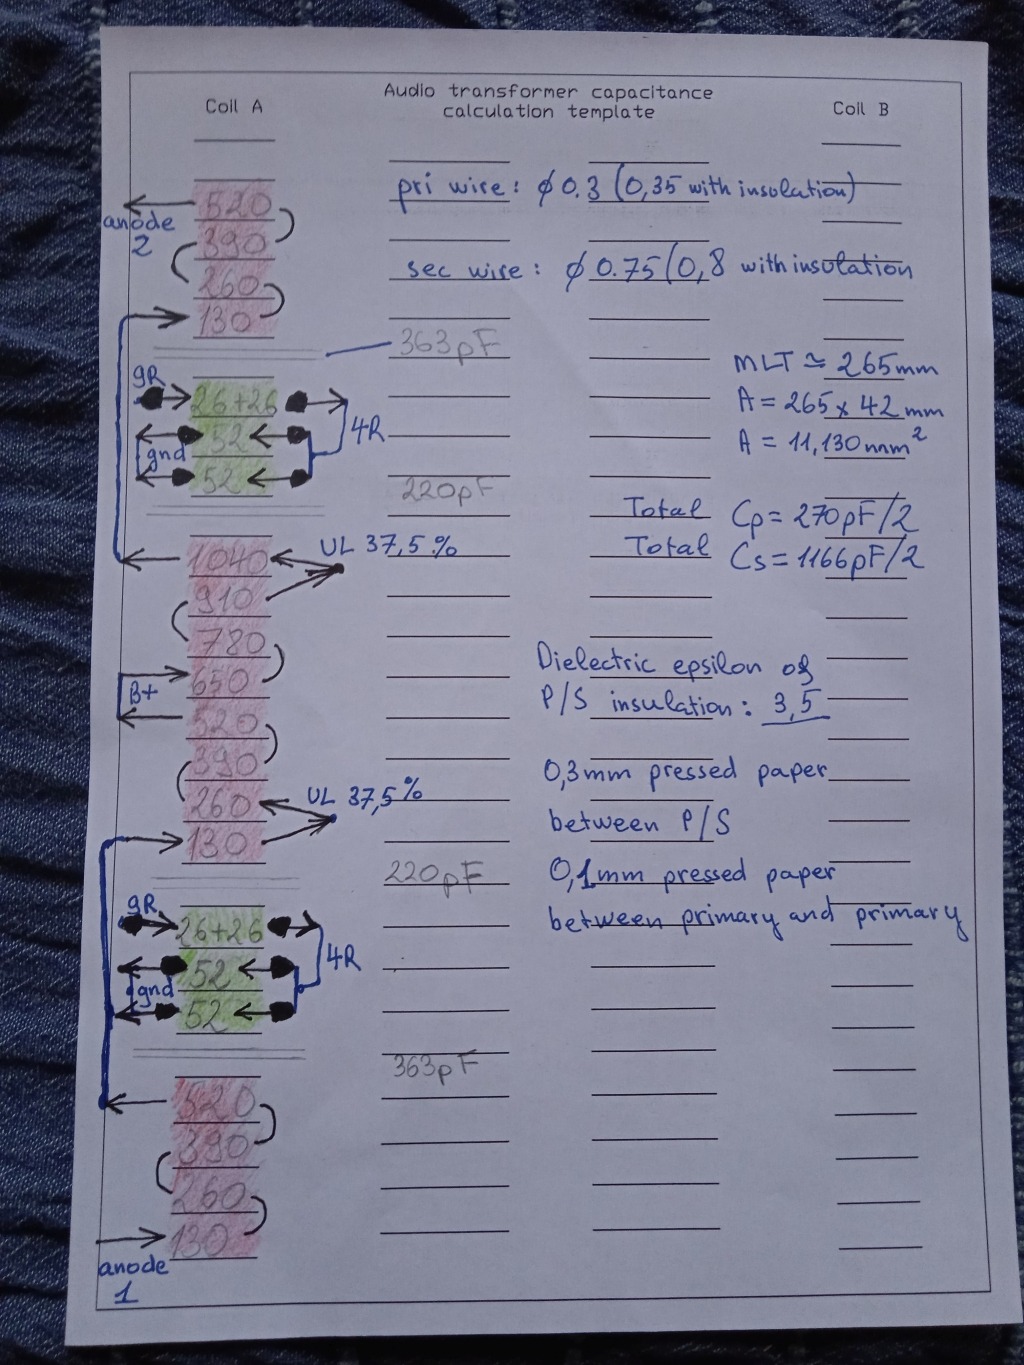 Coil A
Audio transformer capacitance
calculation template
Coil B
520
anode
2
390
260
130
pri wire: ϕ0.3 (0,35 with insolation)
sec wire: ϕ0.75(0,8 with insolation
363pF
9R
26+26
52
gnd
52
4R
MLT ≃ 265mm
A = 265 x 42 mm
A = 11,130mm²
220pF
Total Cp = 270pF/2
Total Cs = 1166pF/2
1040
UL 37,5%
910
780
650
B+
520
390
260
UL 37,5%
130
Dielectric epsilon of
P/S insulation: 3,5
0,3mm pressed paper
between P/S
220pF
0,1mm pressed paper
between primary and primary
9R
26+26
52
gnd
52
4R
363pF
520
390
260
130
anode
1